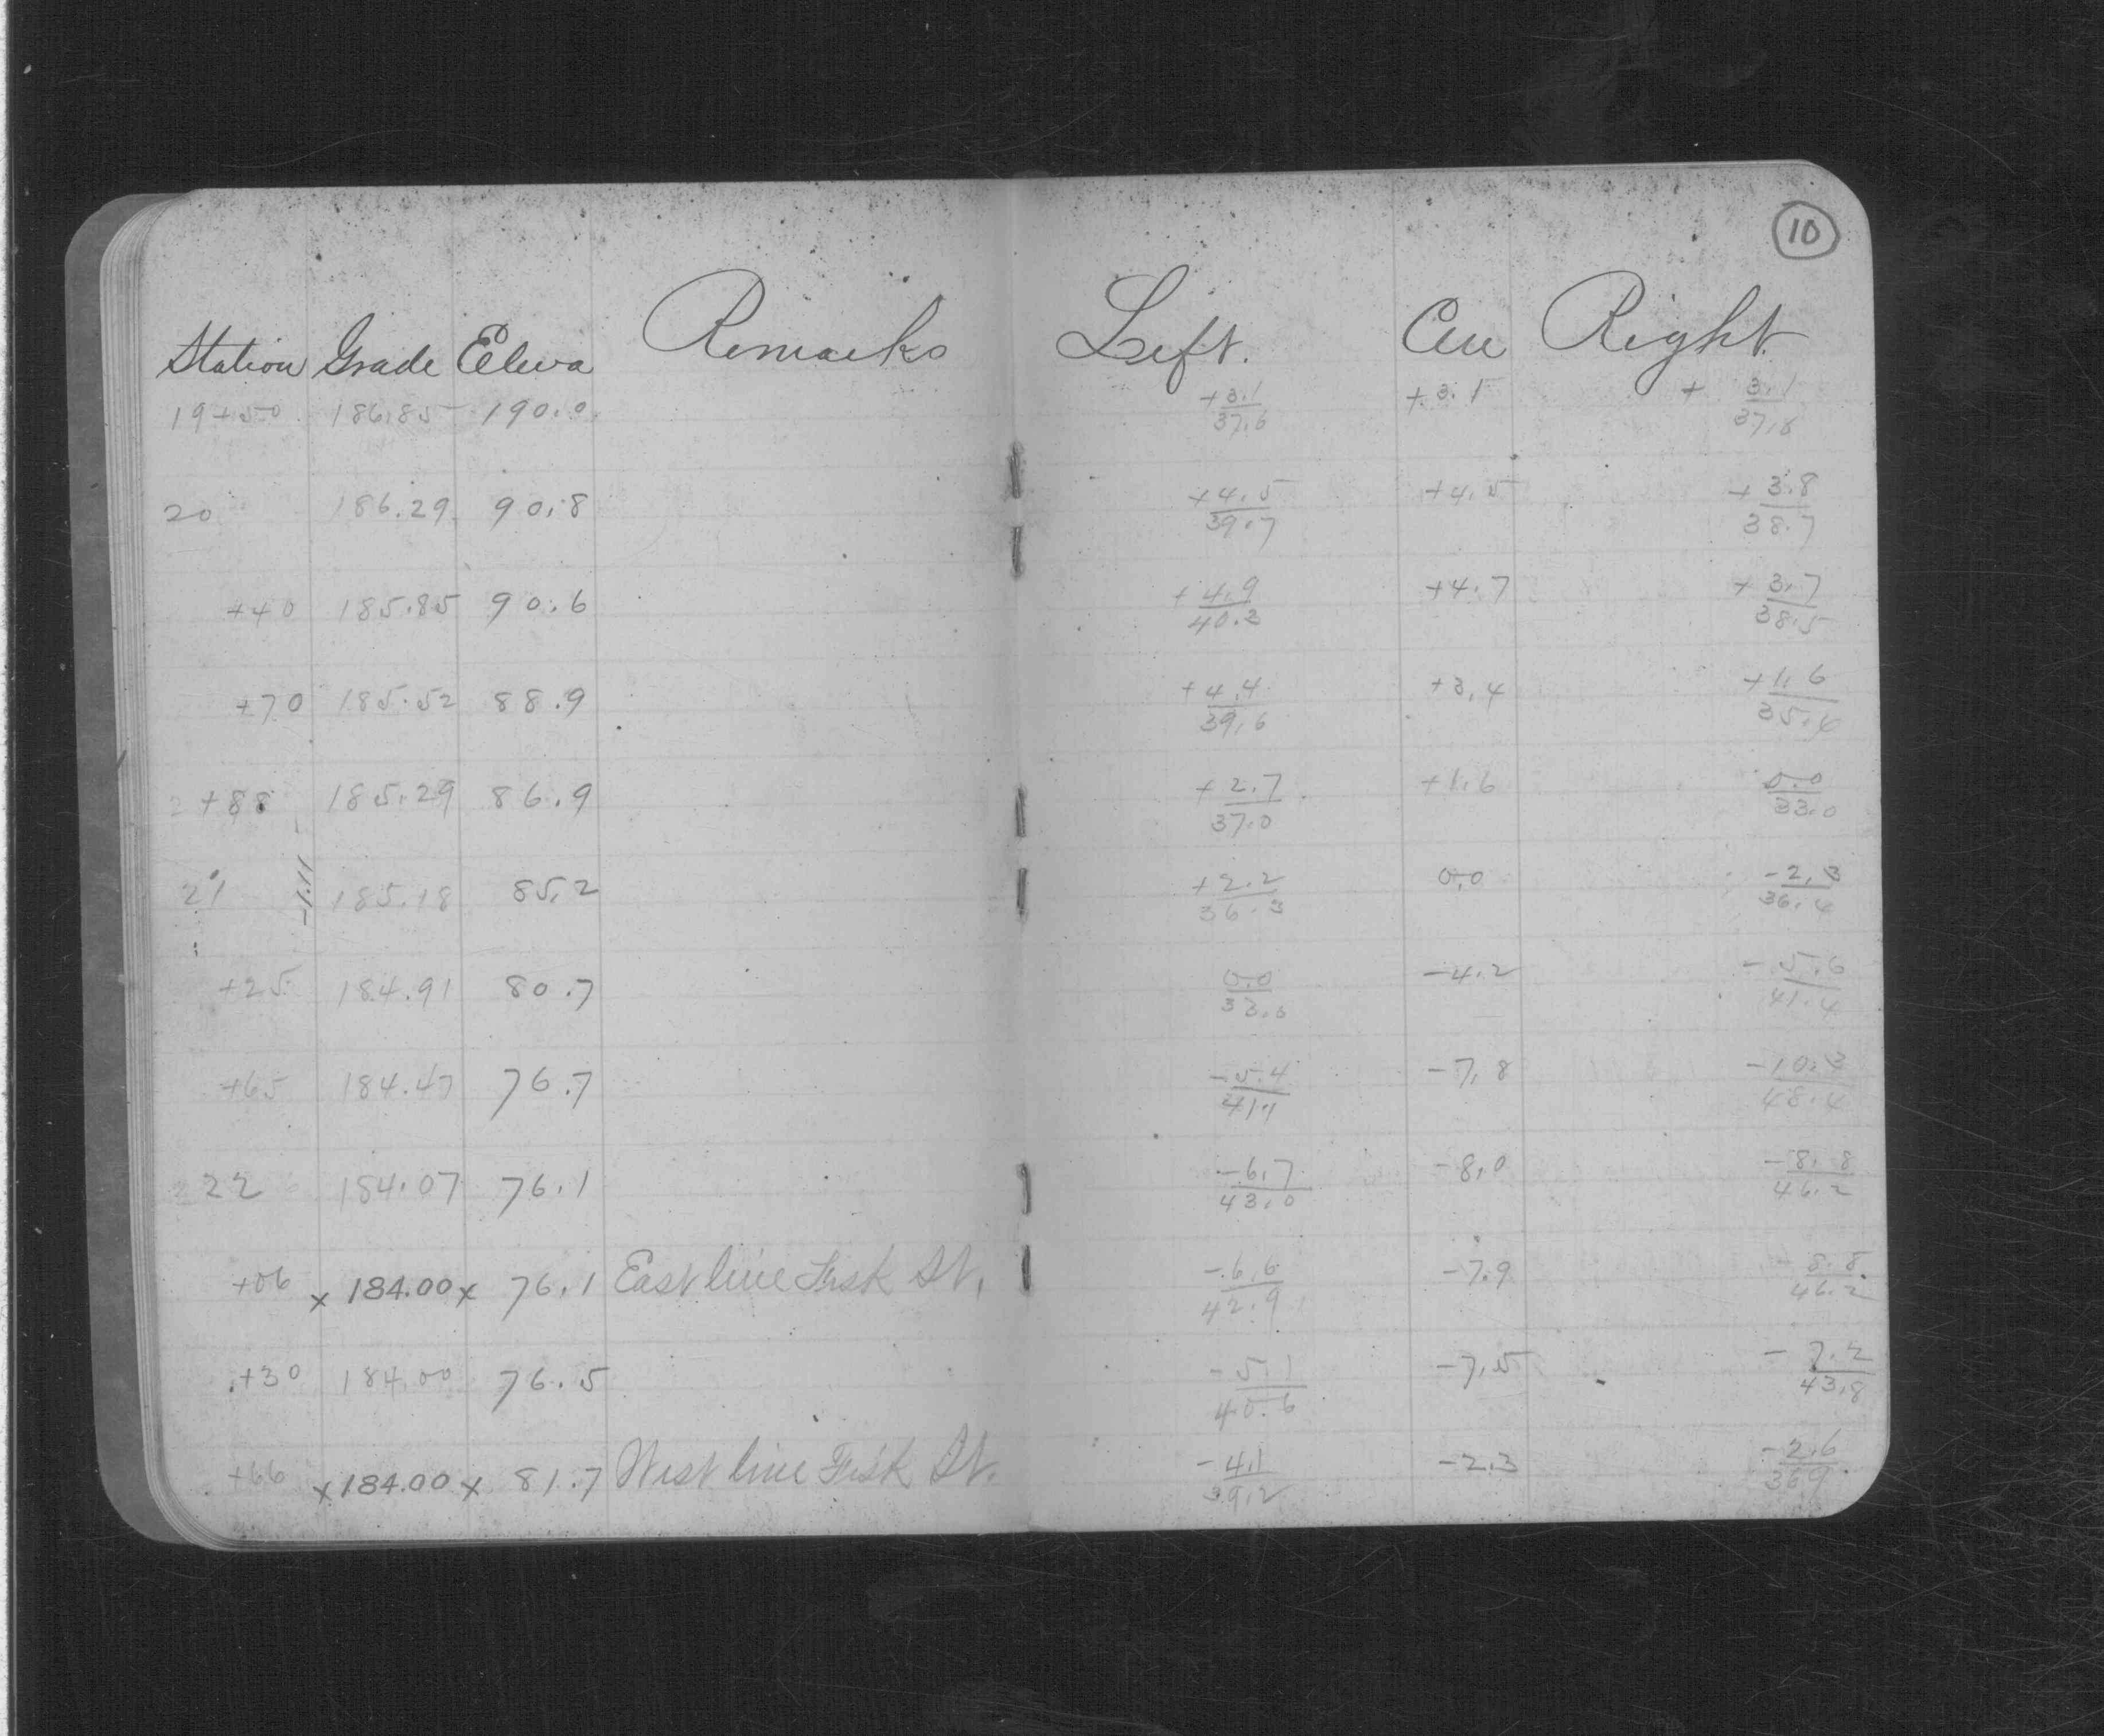 10
Station Grade Eleva Remarks Left. Cen Right.
19+50 186.85 190.0 +3.1/37.6 +3.1 +3.1/37.6
20 186.29 90.8 +4.5/39.7 +4.5 +3.8/38.7
+40 185.85 90.6 +4.9/40.3 +4.7 +3.7/38.5
+70 185.52 88.9 +4.4/39.6 +3.4 +1.6/35.4
+88 185.29 86.9 +2.7/37.0 +1.6 0.0/33.0
21 -1.11 185.18 85.2 +2.2/36.3 0.0 -2.3/36.4
+25 184.91 80.7 0.0/33.0 -4.2 -5.6/41.4
+65 184.47 76.7 -5.4/41.1 -7.8 -10.3/48.4
22 184.07 76.1 -6.7/43.0 -8.0 -8.8/46.2
+06 x 184.00 x 76.1 East line Fisk St. -6.6/42.9 -7.9 8.8/46.2
+30 184.00 76.5 -5.1/40.6 -7.5 -7.2/43.8
+66 x 184.00 x 81.7 West line Fisk St. -4.1/39.2 -2.3 -2.6/36.9